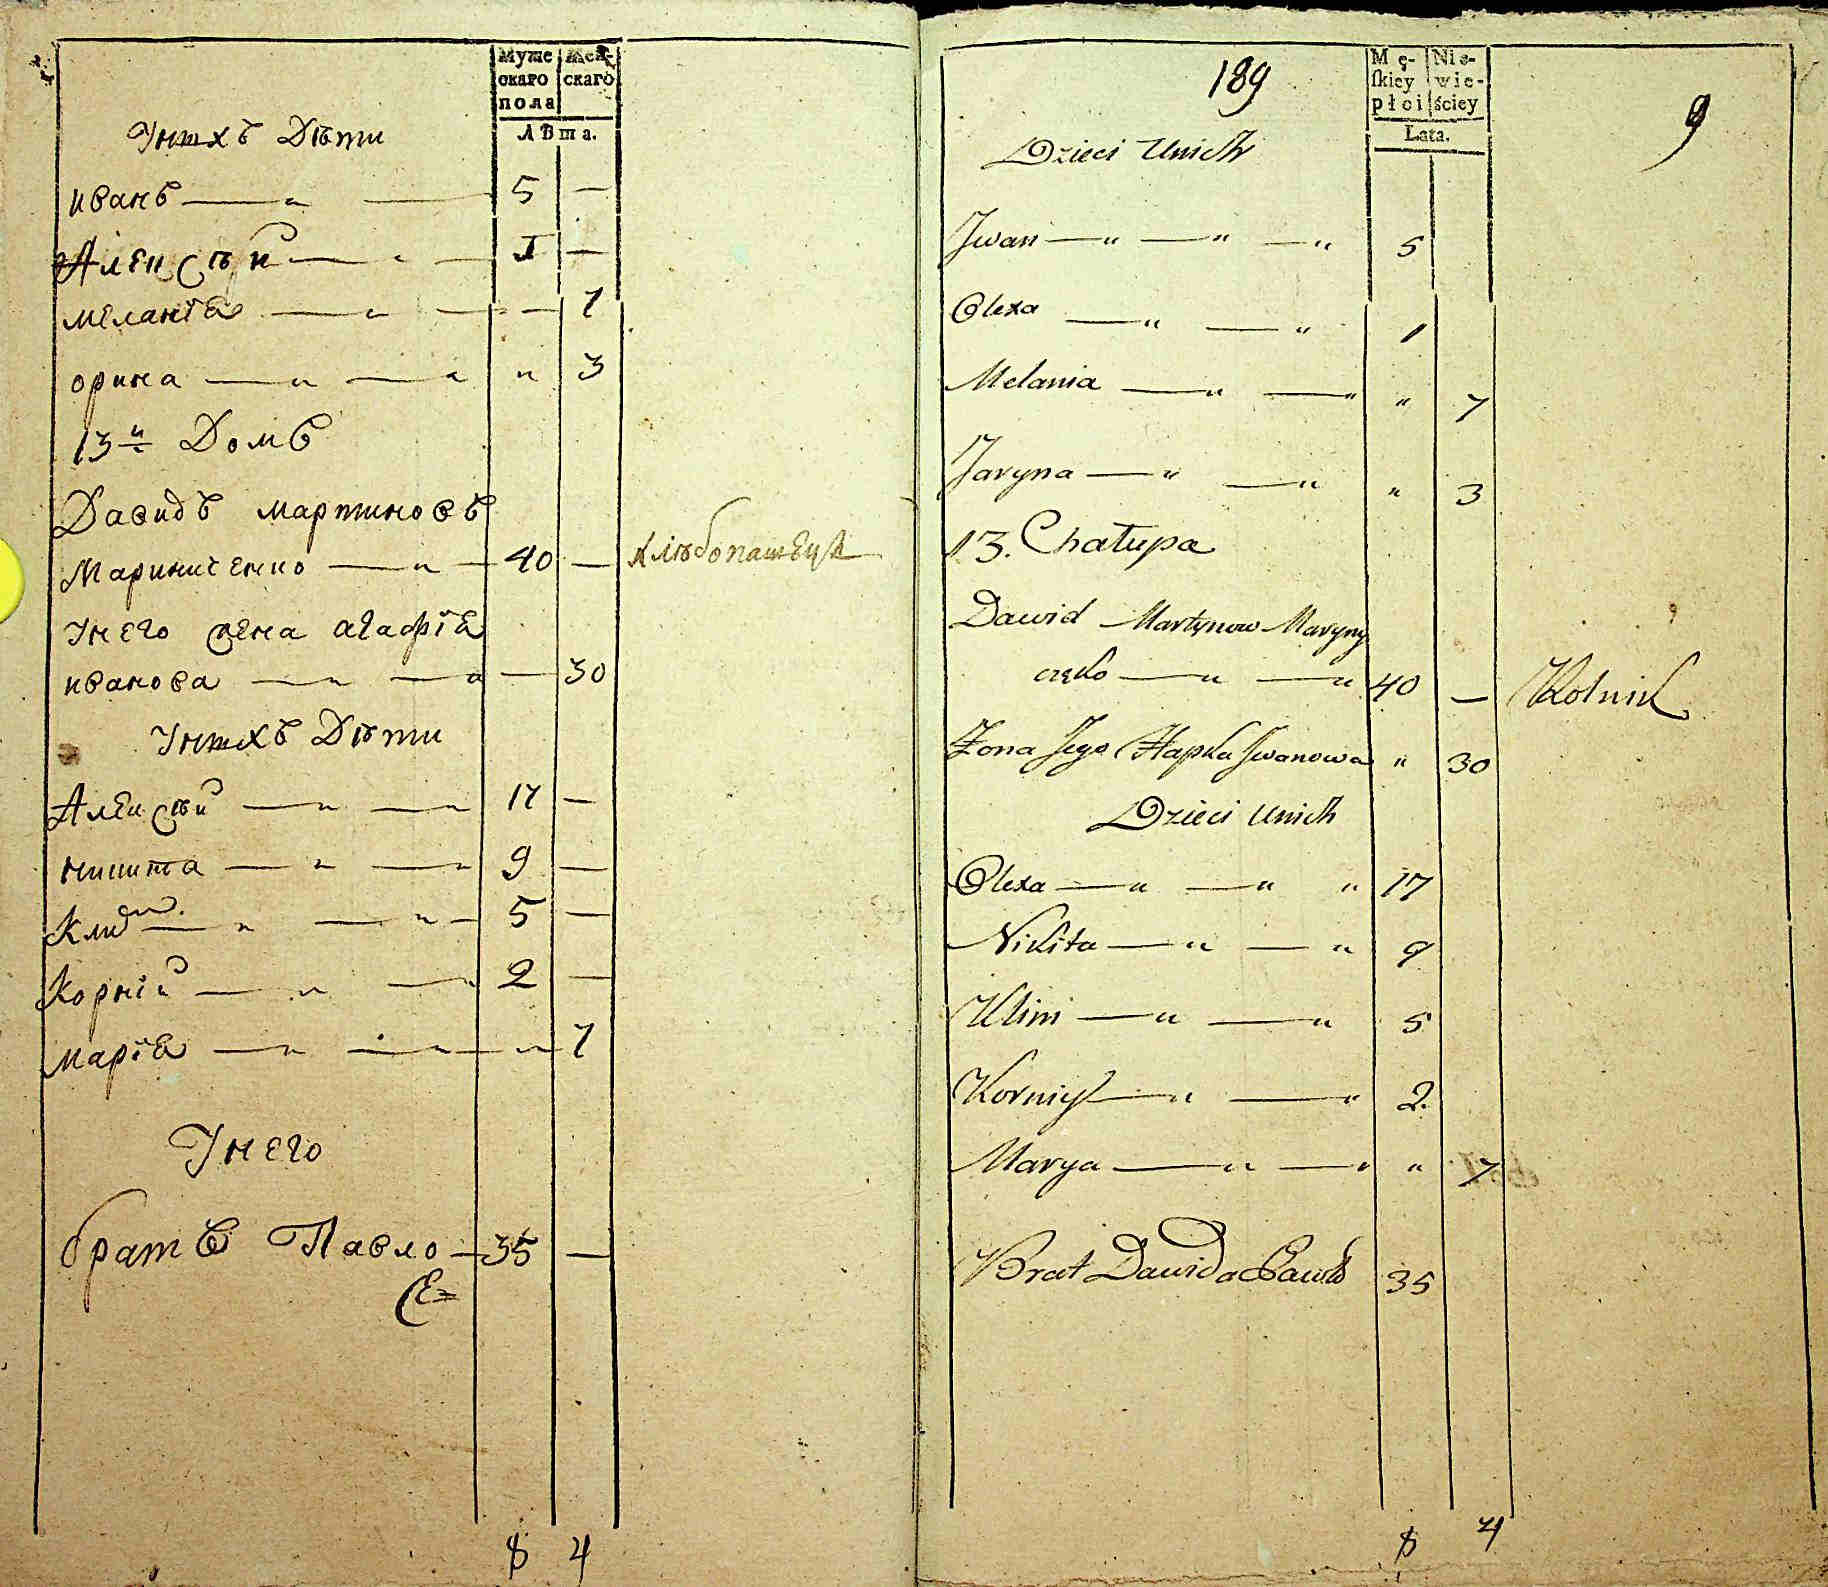 Муже Жен-
скаго скаго
пола
Лѣта.
Унихъ Дѣти
иванъ 5 —
Алексѣй 1 —
меланiя — 7
орина " 3
13й Домъ
Давидъ мартиновъ
Мариниченко 40 — хлѣбопашецъ
Унего жена агафiя
иванова — 30
Унихъ Дѣти
Алексѣй 17 —
никита 9 —
Клим 5 —
Корнiй 2 —
марiя " 7
Унего
братъ Павло 35 —
8 4
189
9
Mę- Nie-
skiey wie-
płci ściey
Lata.
Dzieci Unich
Jwan " " " 5
Olexa " " 1
Melania " " " 7
Jaryna " " " 3
13. Chałupa
Dawid Martynow Maryny
częko " " 40 — Rolnik
Żona Jego Hapka Jwanowa " 30
Dzieci Unich
Olexa " " " 17
Nikita " " 9
Klim " " 5
Korniy " " 2.
Marya " " " 7
Brat Dawida Pawło 35
8 4